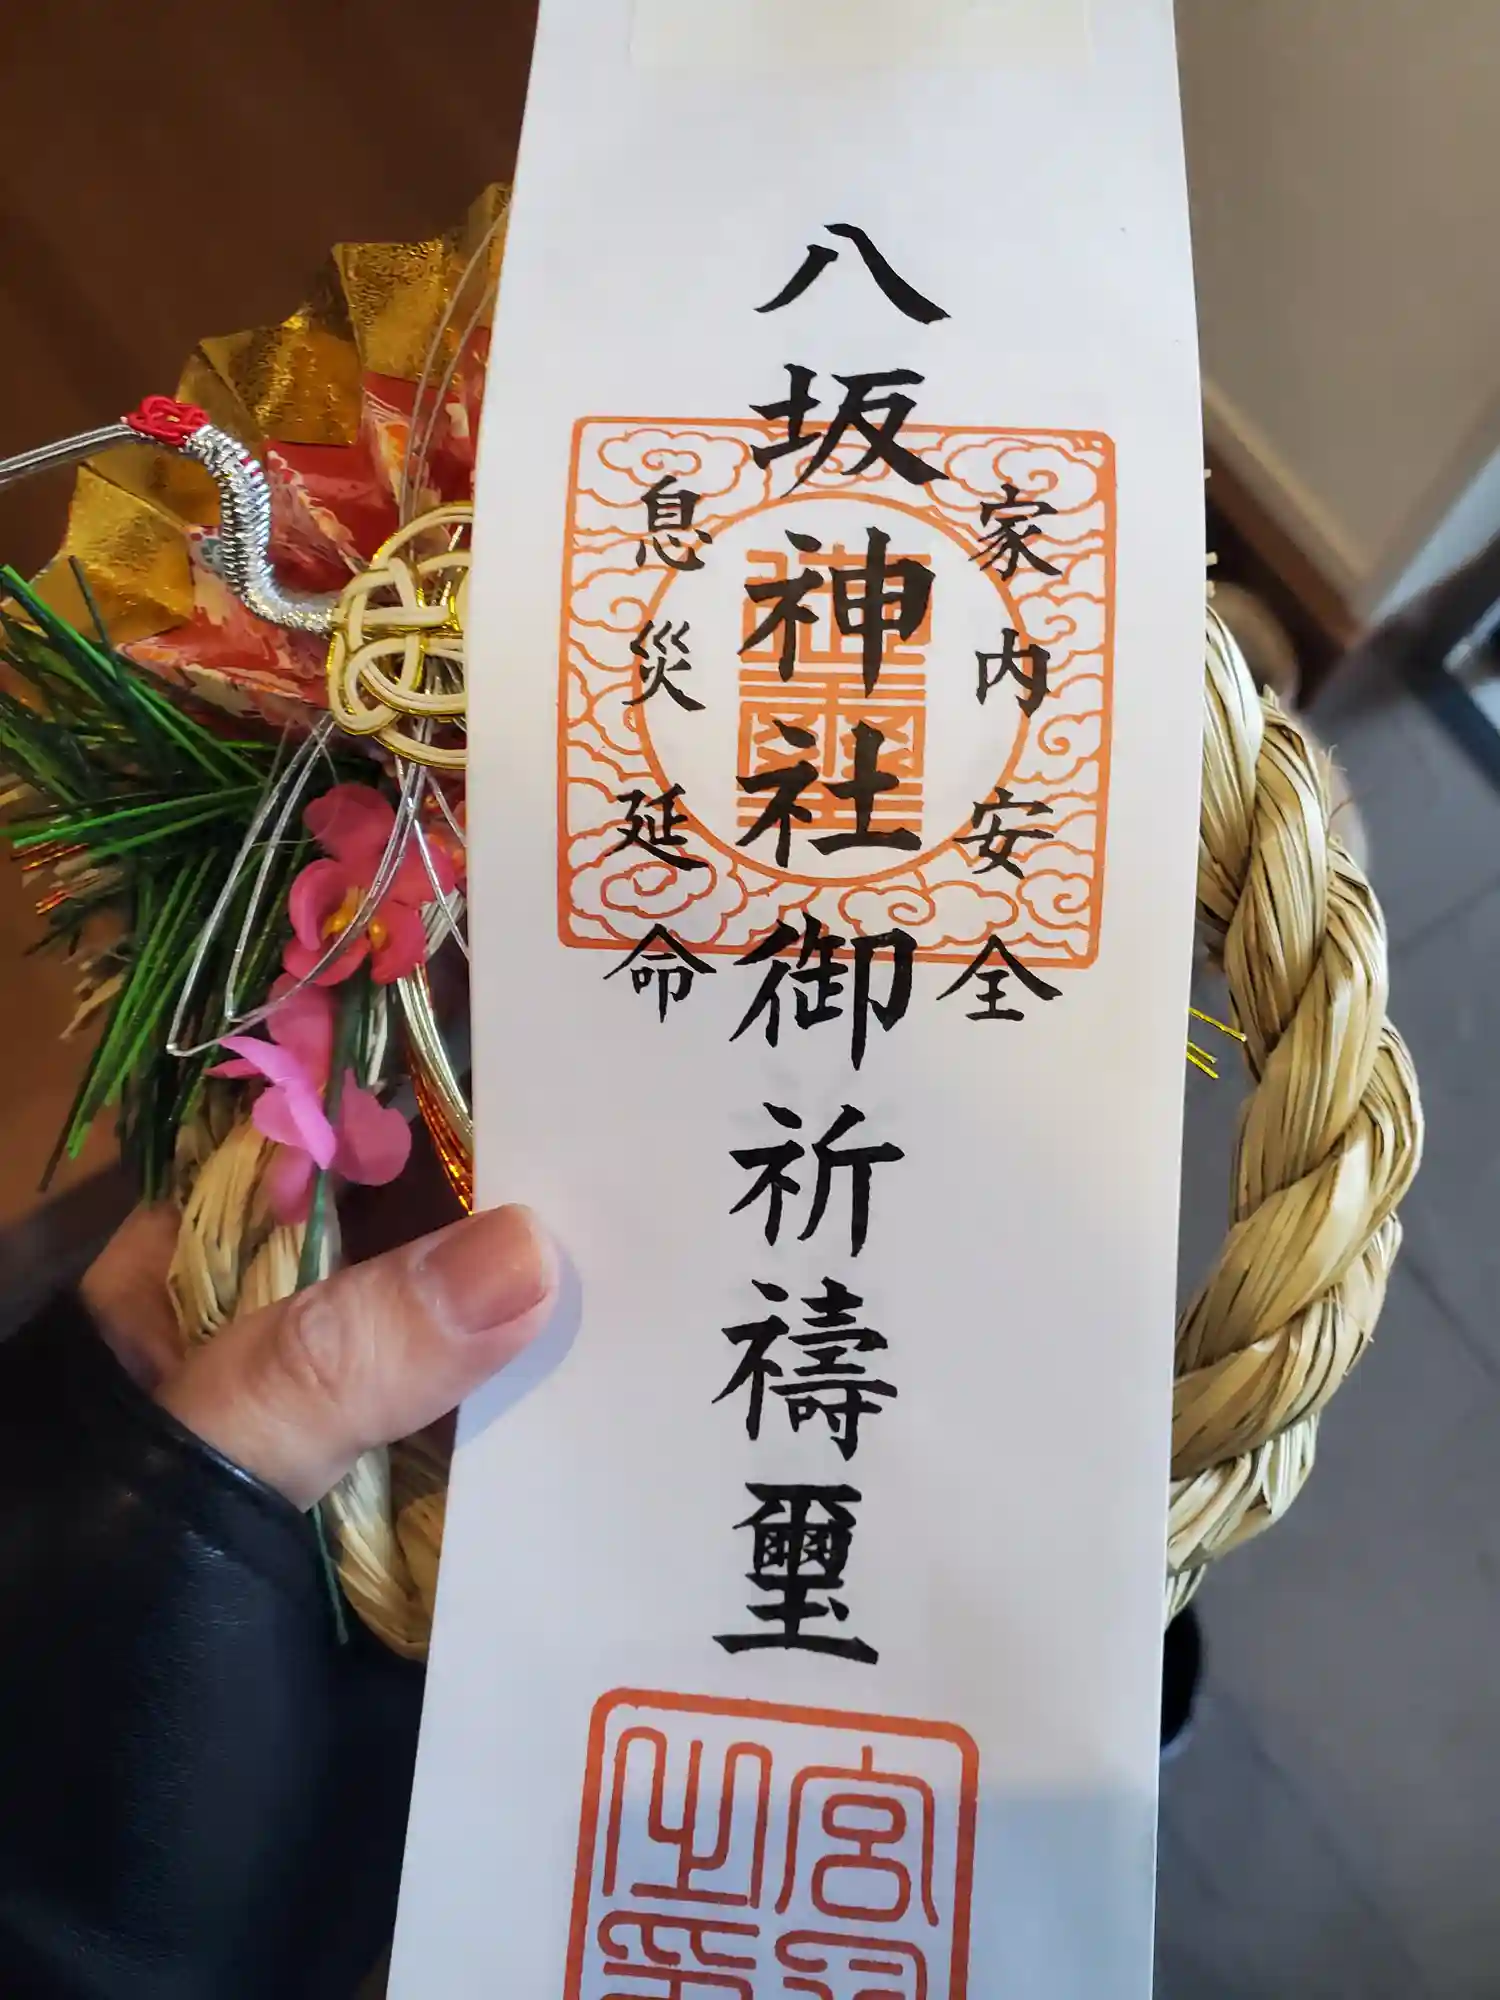 家内安全
八坂神社御祈禱璽
息災延命
宮
之